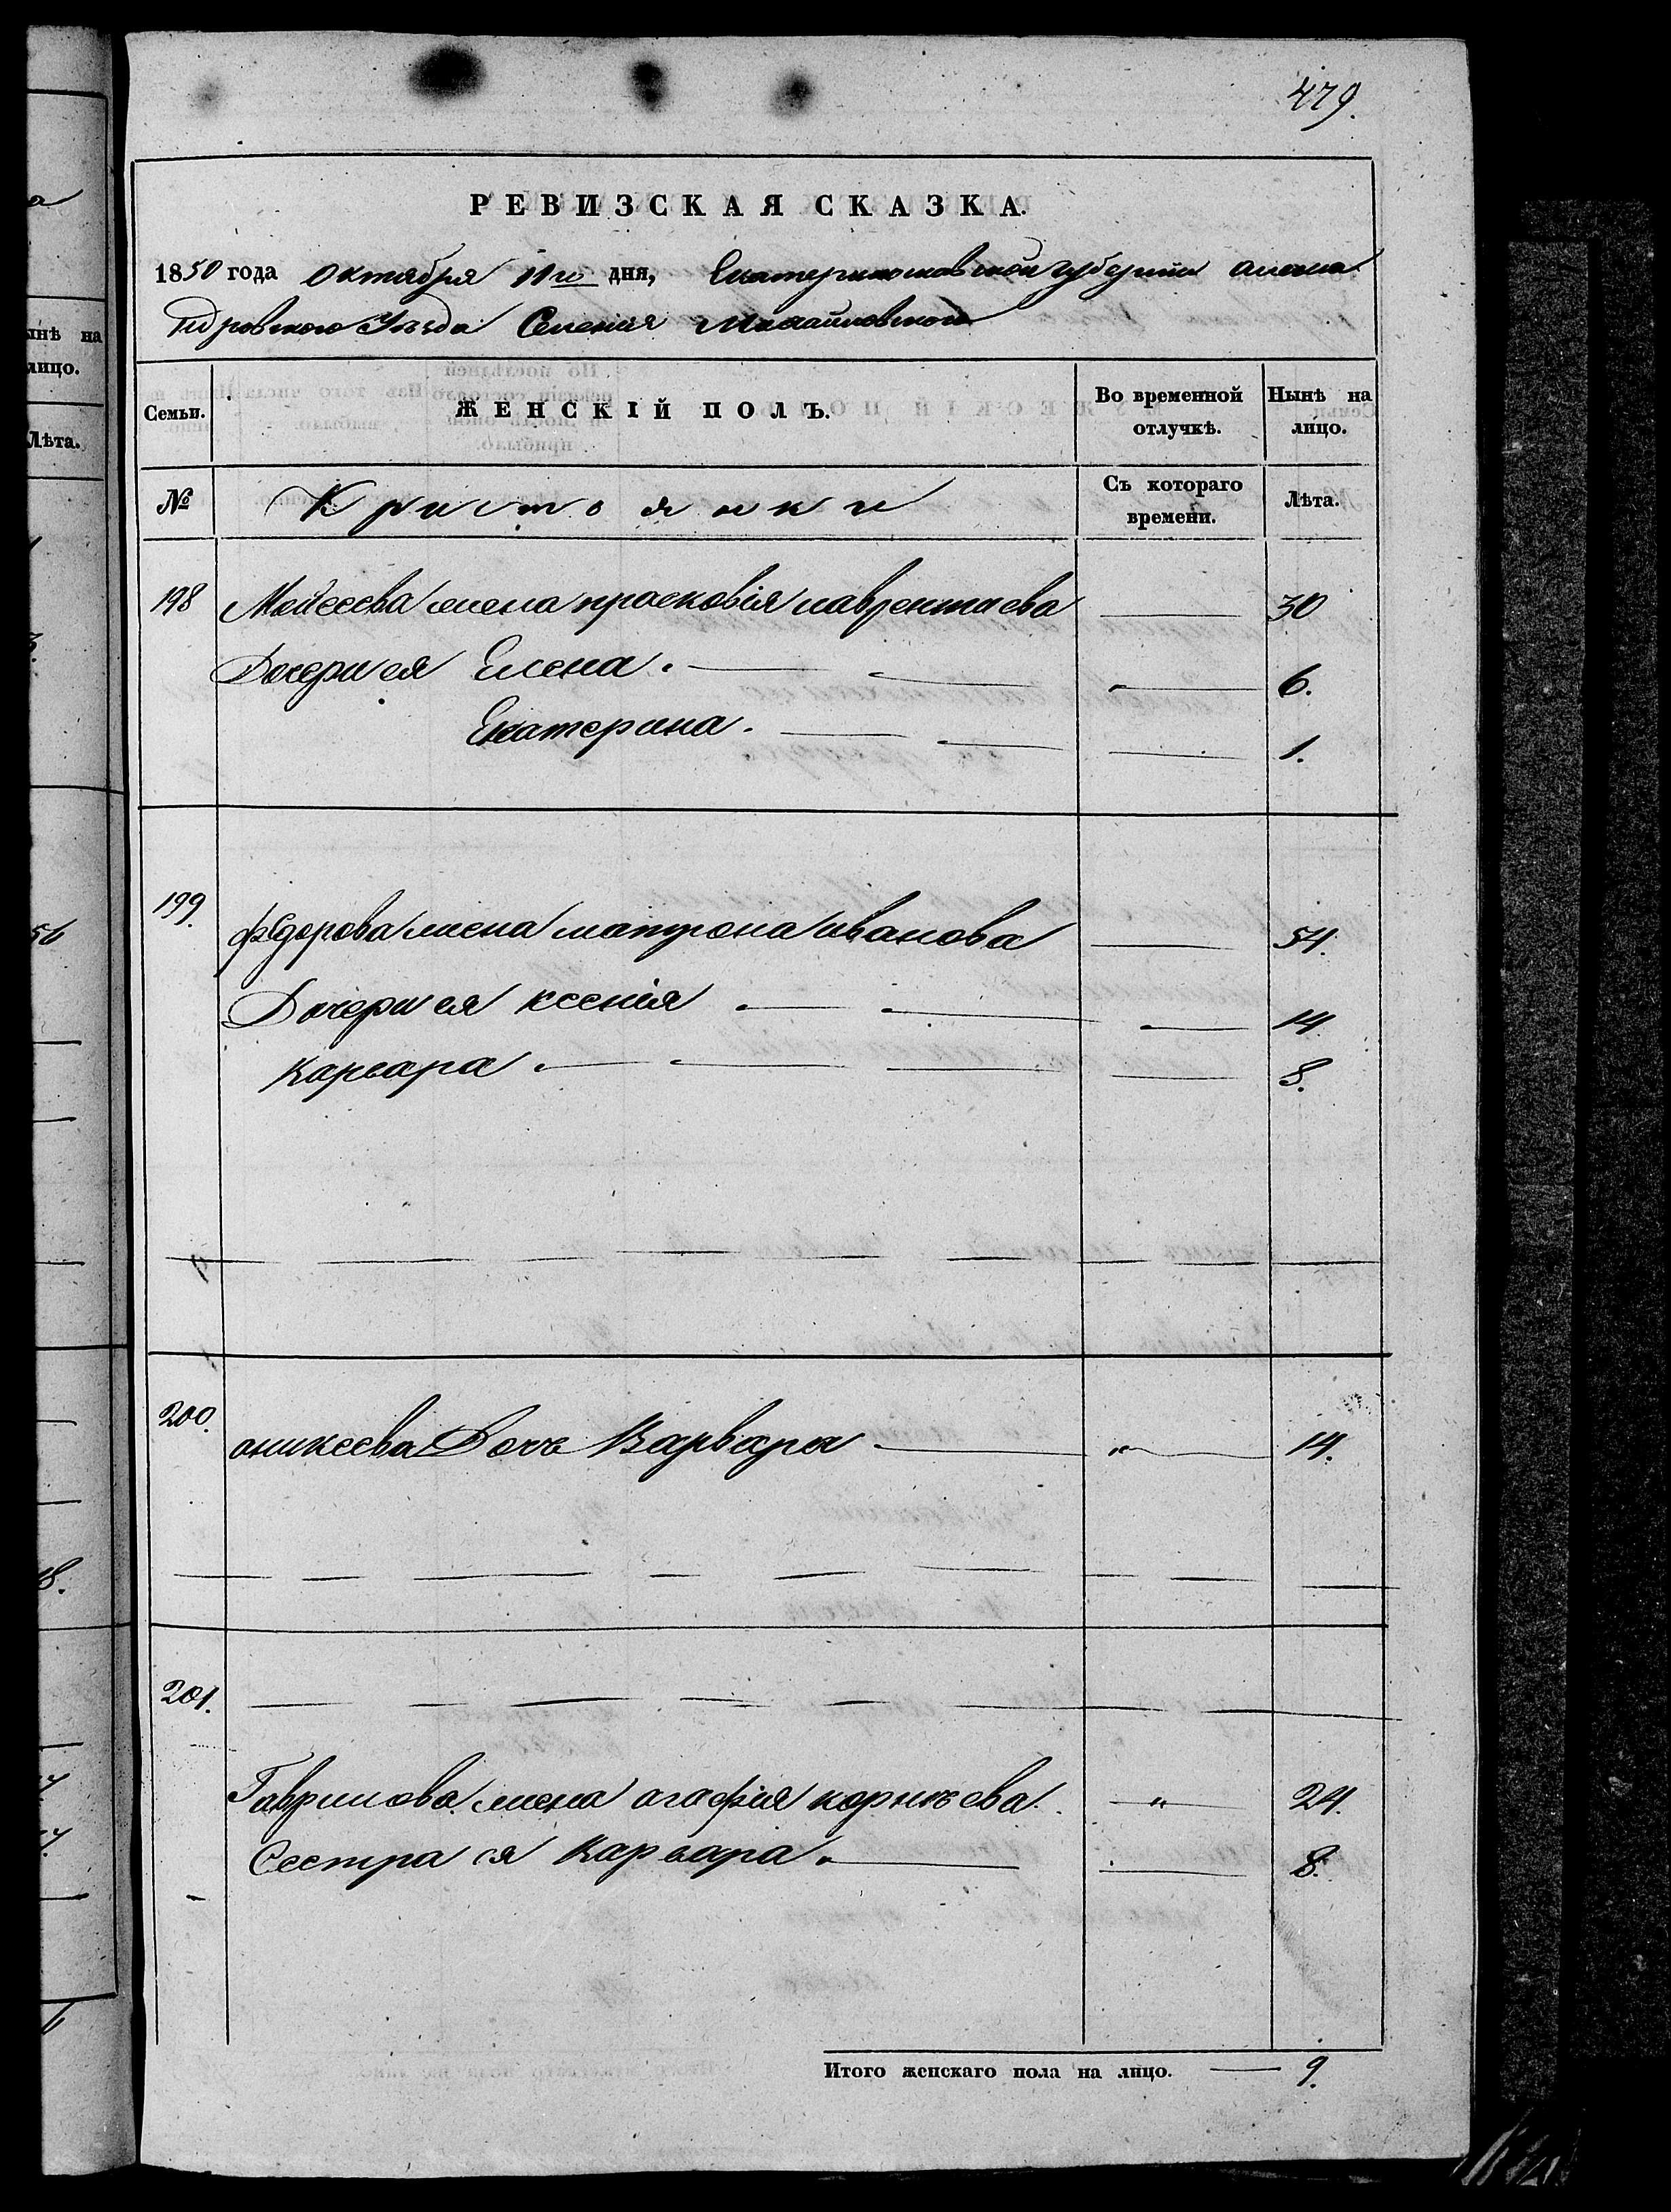 479.
РЕВИЗСКАЯ СКАЗКА.
1850 года октября 11го дня, Екатеринославской губернии алекса
ндровского Уезда Селения Михайловского
Семьи.
ЖЕНСКІЙ ПОЛЪ.
Во временной отлучкѣ.
Нынѣ на лицо.
№
Кристоянки
Съ котораго времени.
Лѣта.
198 Мойсеева жена прасковія лаврентиева 30
Дочери ея Елена. 6.
Екатерина. 1.
199. федорова жена матрона иванова 54.
Дочери ея ксенія 14
варвара. 8.
200. оникеева Дочь Варвара 14.
201.
Гаврилова жена агафия корнѣева. " 24.
Сестра ея варвара. 8.
Итого женскаго пола на лицо. 9.
ынѣ на
лицо.
Лѣта.
56